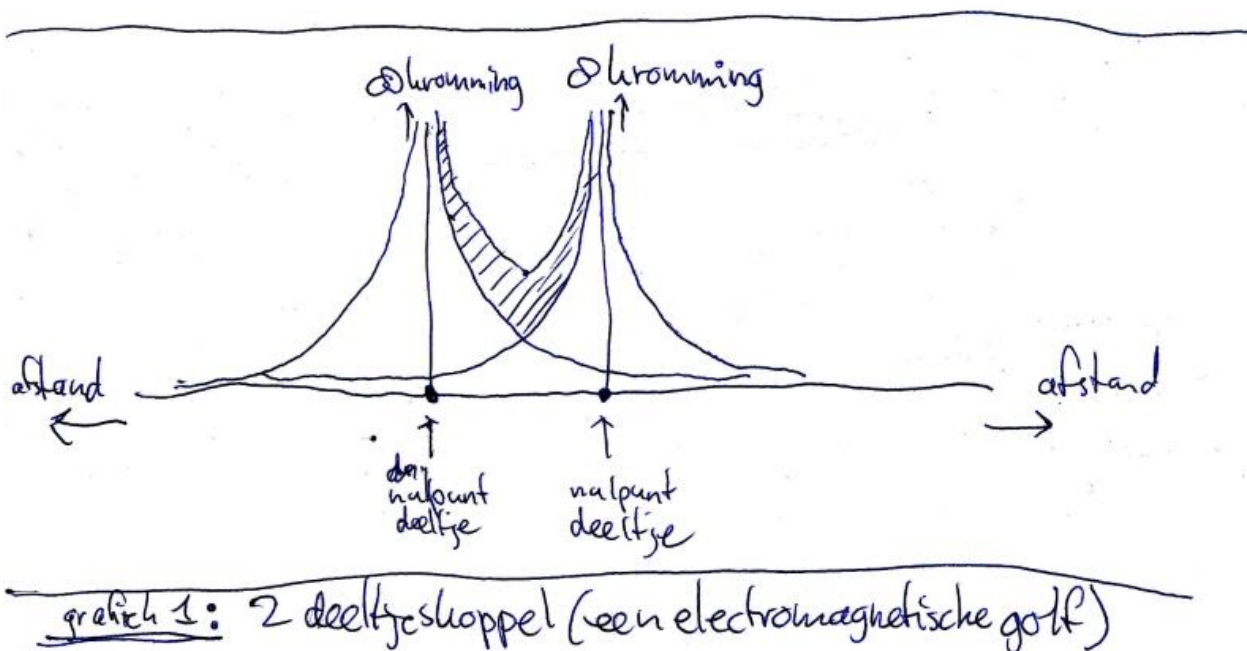 ∞ kromming
∞ kromming
afstand
afstand
nulpunt
deeltje
nulpunt
deeltje
grafiek 1: 2 deeltjeskoppel (een electromagnetische golf)